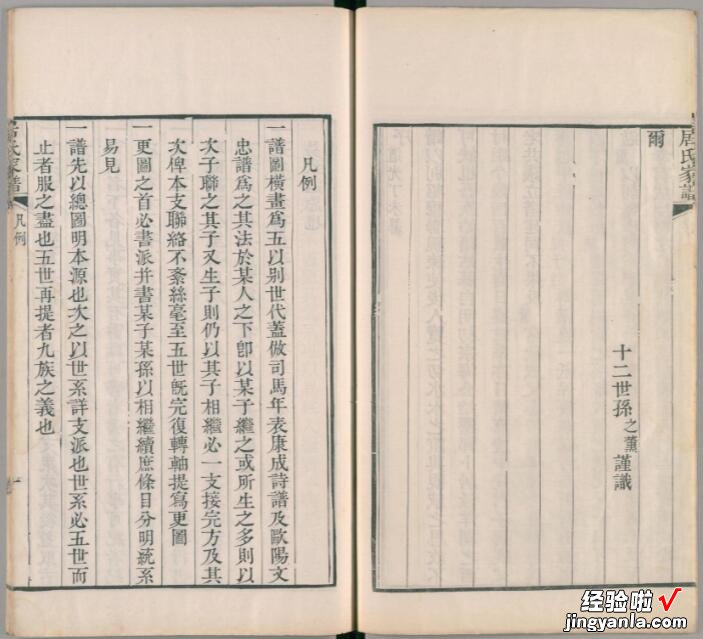 居氏家譜
爾
十二世孫之薰謹識
凡例
一譜圖橫畫爲五以别世代蓋倣司馬年表康成詩譜及歐陽文
忠譜爲之其法於某人之下卽以某子繼之或所生之多則以
次子聯之其子又生子則仍以其子相繼必一支接完方及其
次俾本支聯絡不紊絲毫至五世旣完復轉軸提寫更圖
一更圖之首必書派并書某子某孫以相繼續庶條目分明統系
易見
一譜先以總圖明本源也次之以世系詳支派也世系必五世而
止者服之盡也五世再提者九族之義也
居氏家譜
凡例
一
经验啦√
jingyanla.com